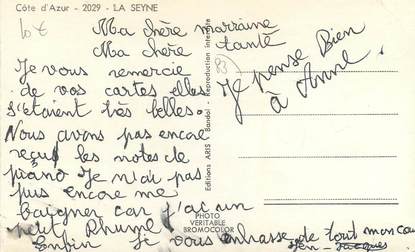 Côte d'Azur - 2029 - LA SEYNE
Ma chère marraine
Ma chère tante
Je vous remercie
de vos cartes elles
s'étaient très belles.
Nous avons pas encore
reçus les notes de
piano. Je n'ai pas
pus encore me
baigner car j'ai un
petit Rhume
Enfin Je vous embrasse de tout mon cœur
Jean-Jacques
Je pense Bien
à Anne
83
Editions ARIS - Bandol - Reproduction interdite
PHOTO
VERITABLE
BROMOCOLOR